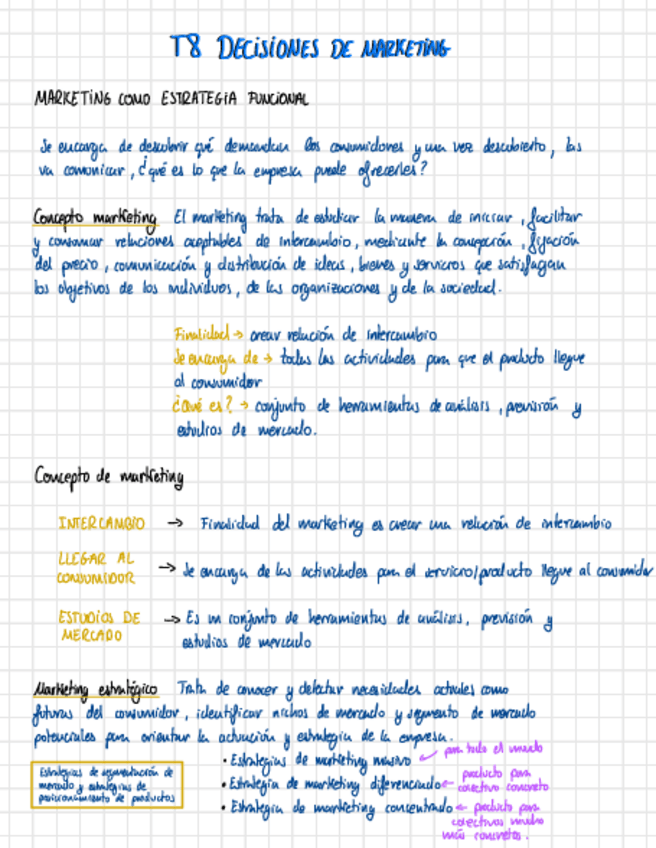 T8 DECISIONES DE MARKETING
MARKETING COMO ESTRATEGIA FUNCIONAL
Se encarga de descubrir qué demandan los consumidores y una vez descubierto, las
va comunicar, ¿qué es lo que la empresa puede ofrecerles?
Concepto marketing El marketing trata de estudiar la manera de iniciar, facilitar
y consumar relaciones aceptables de intercambio, mediante la concepción, fijación
del precio, comunicación y distribución de ideas, bienes y servicios que satisfagan
los objetivos de los individuos, de las organizaciones y de la sociedad.
Finalidad → crear relación de intercambio
Se encarga de → todas las actividades para que el producto llegue
al consumidor
¿Qué es? → conjunto de herramientas de análisis, previsión y
estudios de mercado.
Concepto de marketing
INTERCAMBIO → Finalidad del marketing es crear una relación de intercambio
LLEGAR AL
CONSUMIDOR → Se encarga de las actividades para el servicio/producto llegue al consumidor
ESTUDIOS DE
MERCADO → Es un conjunto de herramientas de análisis, previsión y
estudios de mercado
Marketing estratégico Trata de conocer y detectar necesidades actuales como
futuras del consumidor, identificar nichos de mercado y segmento de mercado
potenciales para orientar la actuación y estrategia de la empresa.
Estrategias de segmentación de
mercado y estrategias de
posicionamiento de productos
• Estrategias de marketing masivo ← para todo el mundo
• Estrategia de marketing diferenciado ← producto para
colectivo concreto
• Estrategia de marketing concentrado ← producto para
colectivos mucho
más concretos.